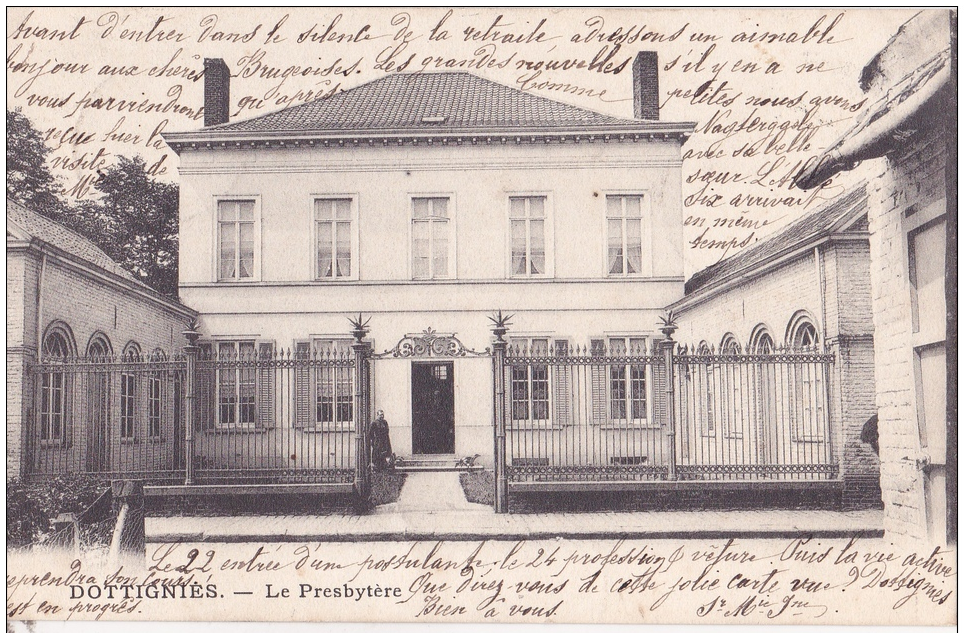 Avant d'entrer dans le silence de la retraite adressons un aimable
bonjour aux chères Brugeoises. Les grandes nouvelles s'il y en a ne
vous parviendront qu'après. Comme petites nous avons
reçu hier la
visite de
Mr
Nagtergaele
avec sa belle-
sœur. L'Abbé
Six arrivait
en même
temps.
Le 22 entrée d'une postulante, le 24 profession & vêture Puis la vie active
reprendra son cours.
DOTTIGNIES. — Le Presbytère
Que direz vous de cette jolie carte vue? Dottignies
est en progrès.
Bien à vous.
Sr Mie Jne